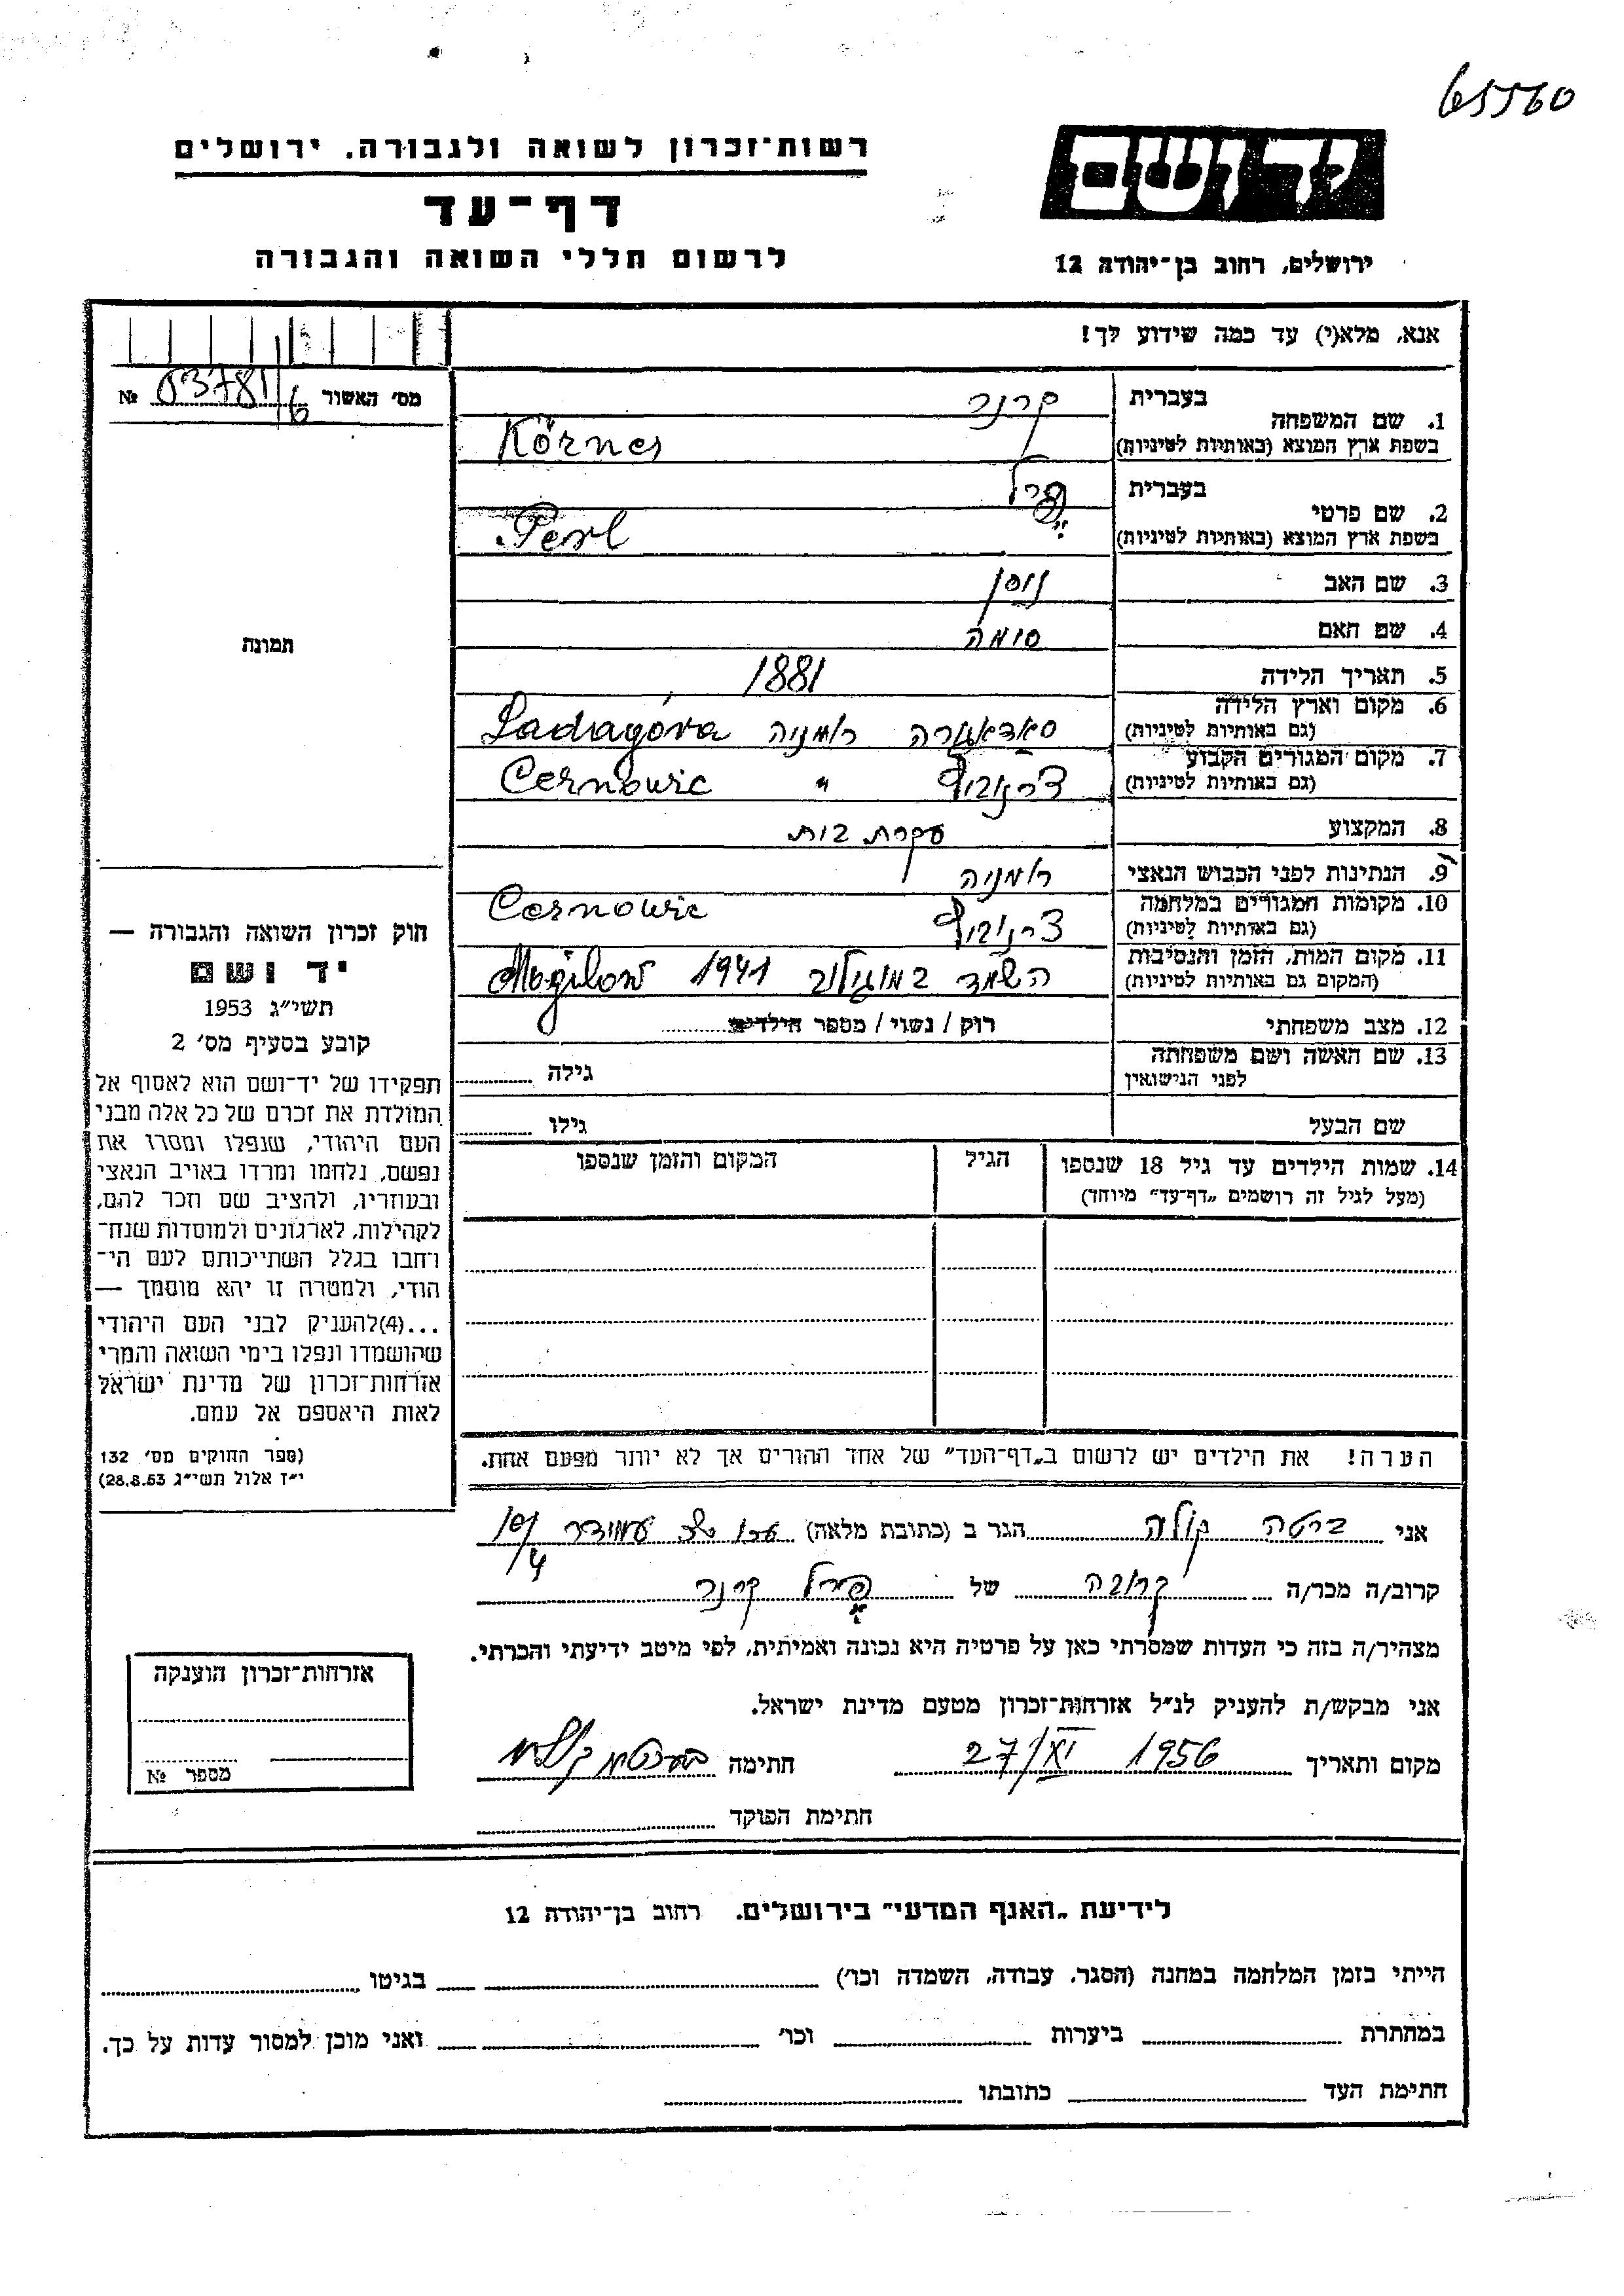 65560
רשות־זכרון לשואה ולגבורה. ירושלים
דף־עד
לרשום חללי השואה והגבורה
ידושם
ירושלים, רחוב בן־יהודה 12
אנא, מלא(י) עד כמה שידוע לך!
מס׳ האשור 03781/6 №
1. שם המשפחה
בעברית קרנר
בשפת ארץ המוצא (באותיות לטיניות) Körner
2. שם פרטי
בעברית פרל
בשפת ארץ המוצא (באותיות לטיניות) Perl
3. שם האב נוסן
4. שם האם סומה
5. תאריך הלידה 1881
6. מקום וארץ הלידה
(גם באותיות לטיניות) סאדאגורה רומניה Sadagóra
7. מקום המגורים הקבוע
(גם באותיות לטיניות) צרנוביץ " Cernowic
8. המקצוע עקרת בית
9. הנתינות לפני הכבוש הנאצי רומניה
10. מקומות המגורים במלחמה
(גם באותיות לטיניות) צרנוביץ Cernowic
11. מקום המות, הזמן והנסיבות
(המקום גם באותיות לטיניות) השמד במוגילוב 1941 Mogilow
12. מצב משפחתי רוק / נשוי / מספר הילדים
13. שם האשה ושם משפחתה
לפני הנישואין גילה
שם הבעל גילו
14. שמות הילדים עד גיל 18 שנספו הגיל המקום והזמן שנספו
(מעל לגיל זה רושמים „דף־עד״ מיוחד)
תמונה
חוק זכרון השואה והגבורה —
יד ושם
תשי״ג 1953
קובע בסעיף מס׳ 2
תפקידו של יד־ושם הוא לאסוף אל
המולדת את זכרם של כל אלה מבני
העם היהודי, שנפלו ומסרו את
נפשם, נלחמו ומרדו באויב הנאצי
ובעוזריו, ולהציב שם וזכר להם,
לקהילות, לארגונים ולמוסדות שנח־
רחבו בגלל השתייכותם לעם הי־
הודי, ולמטרה זו יהא מוסמך —
...(4)להעניק לבני העם היהודי
שהושמדו ונפלו בימי השואה והמרי
אזרחות־זכרון של מדינת ישראל
לאות היאספם אל עמם.
(ספר החוקים מס׳ 132
י״ז אלול תשי״ג 28.8.53)
הערה! את הילדים יש לרשום ב„דף־העד״ של אחד ההורים אך לא יותר מפעם אחת.
אני ברטה קולה הגר ב (כתובת מלאה) עמידר 10/4
קרוב/ה מכר/ה קרובה של פרל קרנר
מצהיר/ה בזה כי העדות שמסרתי כאן על פרטיה היא נכונה ואמיתית, לפי מיטב ידיעתי והכרתי.
אני מבקש/ת להעניק לנ״ל אזרחות־זכרון מטעם מדינת ישראל.
מקום ותאריך 27/XI 1956 חתימה
חתימת הפוקד
אזרחות־זכרון הוענקה
מספר №
לידיעת „האגף המדעי״ בירושלים. רחוב בן־יהודה 12
הייתי בזמן המלחמה במחנה (הסגר, עבודה, השמדה וכו׳) בגיטו
במחתרת ביערות וכו׳ ואני מוכן למסור עדות על כך.
חתימת העד כתובתו